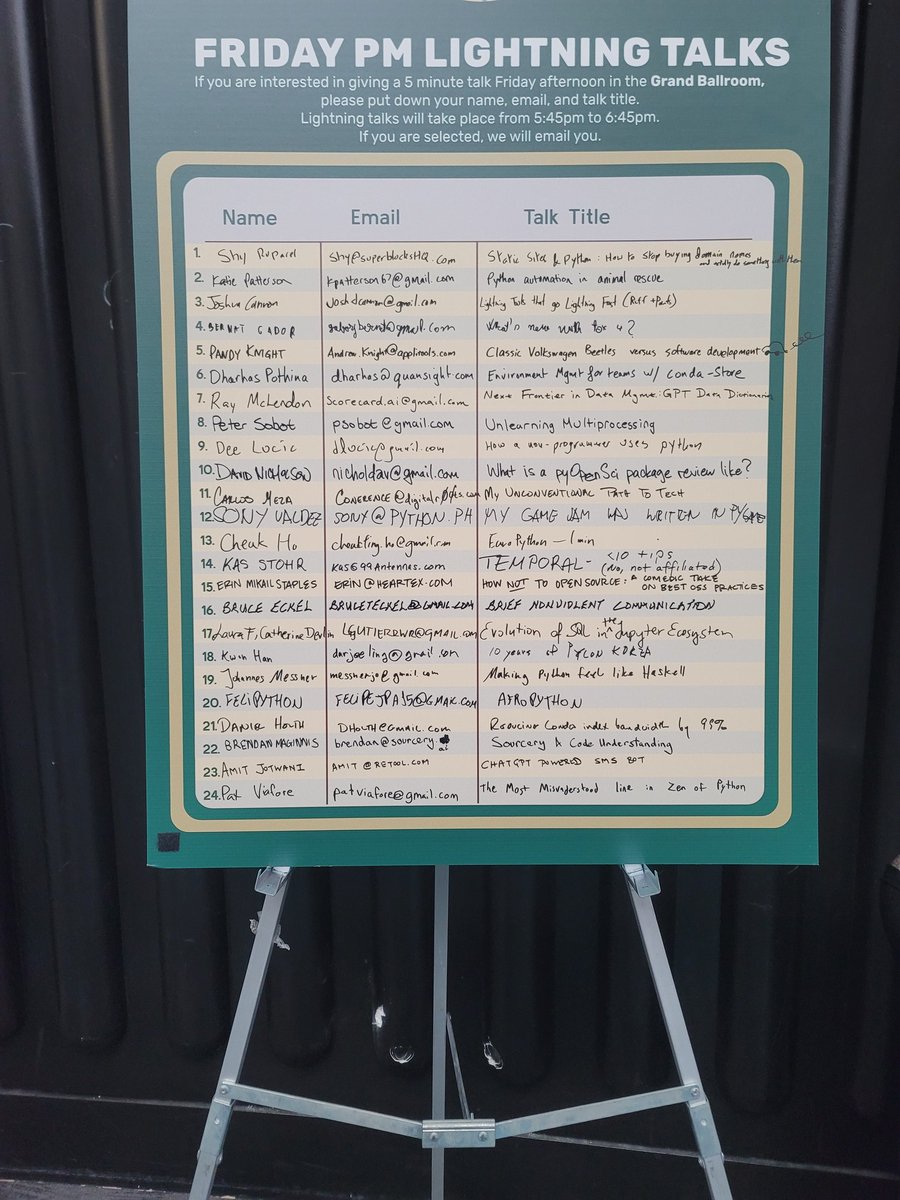 FRIDAY PM LIGHTNING TALKS
If you are interested in giving a 5 minute talk Friday afternoon in the Grand Ballroom,
please put down your name, email, and talk title.
Lightning talks will take place from 5:45pm to 6:45pm.
If you are selected, we will email you.
Name Email Talk Title
1. Shy Ruparel shy@superblocksHQ.com Static Sites & Python: How to stop buying domain names and actually do something with them
2. Katie Patterson kpatterson67@gmail.com Python automation in animal rescue
3. Joshua Cannon Lightning Tools that go Lightning Fast (Ruff + Pants)
4. BERNAT GABOR What's new with tox 4?
5. PANDY KNIGHT Andrew.Knight@applitools.com Classic Volkswagen Beetles versus software development
6. Dharhas Pothina dharhas@quansight.com Environment Mgmt for teams w/ conda-store
7. Ray McLendon scorecard.ai@gmail.com Next Frontier in Data Mgmt: GPT Data Dictionaries
8. Peter Sobot psobot@gmail.com Unlearning Multiprocessing
9. Dee Lucic dlucic@gmail.com How a non-programmer uses python
10. DAVID NICHOLSON nicholdav@gmail.com What is a pyOpenSci package review like?
11. CARLOS MEZA My UNCONVENTIONAL PATH TO TECH
12. SONY VALDEZ SONY@PYTHON.PH MY GAME JAM WAS WRITTEN IN PYGAME
13. Cheuk Ho cheukting.ho@gmail.com EuroPython - 1 min
14. KAS STOHR kas@99Antennas.com TEMPORAL - <10 tips (No, not affiliated)
15. ERIN MIKAIL STAPLES ERIN@HEARTEX.COM HOW NOT TO OPEN SOURCE: A COMEDIC TAKE ON BEST OSS PRACTICES
16. BRUCE ECKEL BRUCETECKEL@GMAIL.COM BRIEF NONVIOLENT COMMUNICATION
17. Laura F, Catherine Devlin Evolution of SQL in the Jupyter Ecosystem
18. Kwon Han darjeeling@gmail.com 10 years of PYCON KOREA
19. Johannes Messner messnerjo@gmail.com Making Python feel like Haskell
20. FELIPYTHON FELIPEJPA15@GMAIL.COM AFROPYTHON
21. DANIEL HOLTH DHOLTH@GMAIL.com Reducing Conda index bandwidth by 99%
22. BRENDAN MAGINNIS brendan@sourcery.ai Sourcery & Code Understanding
23. AMIT JOTWANI AMIT@RETOOL.COM CHATGPT POWERED SMS BOT
24. Pat Viafore patviafore@gmail.com The Most Misunderstood line in Zen of Python